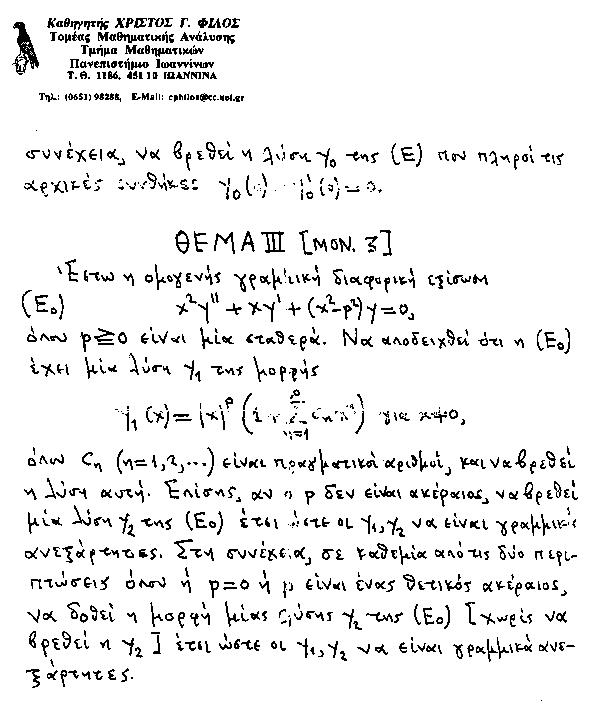 Καθηγητής ΧΡΙΣΤΟΣ Γ. ΦΙΛΟΣ
Τομέας Μαθηματικής Ανάλυσης
Τμήμα Μαθηματικών
Πανεπιστήμιο Ιωαννίνων
Τ.Θ. 1186, 451 10 ΙΩΑΝΝΙΝΑ
Τηλ.: (0651) 98288, E-Mail: cphilos@cc.uoi.gr
συνέχεια, να βρεθεί η λύση y₀ της (E) που πληροί τις
αρχικές συνθήκες y₀(0) = y₀'(0) = 0.
ΘΕΜΑ III [ΜΟΝ. 3]
Έστω η ομογενής γραμμική διαφορική εξίσωση
(E₀) x²y'' + xy' + (x²-p²)y = 0,
όπου p≧0 είναι μία σταθερά. Να αποδειχθεί ότι η (E₀)
έχει μία λύση y₁ της μορφής
y₁(x) = |x|ᵖ (1 + Σ n=1 ∞ cₙxⁿ) για x≠0,
όπου cₙ (n=1,2,...) είναι πραγματικοί αριθμοί, και να βρεθεί
η λύση αυτή. Επίσης, αν ο p δεν είναι ακέραιος, να βρεθεί
μία λύση y₂ της (E₀) έτσι ώστε οι y₁, y₂ να είναι γραμμικώς
ανεξάρτητες. Στη συνέχεια, σε καθεμία από τις δύο περι-
πτώσεις όπου ή p=0 ή p είναι ένας θετικός ακέραιος,
να δοθεί η μορφή μίας λύσης y₂ της (E₀) [χωρίς να
βρεθεί η y₂] έτσι ώστε οι y₁, y₂ να είναι γραμμικά ανε-
ξάρτητες.